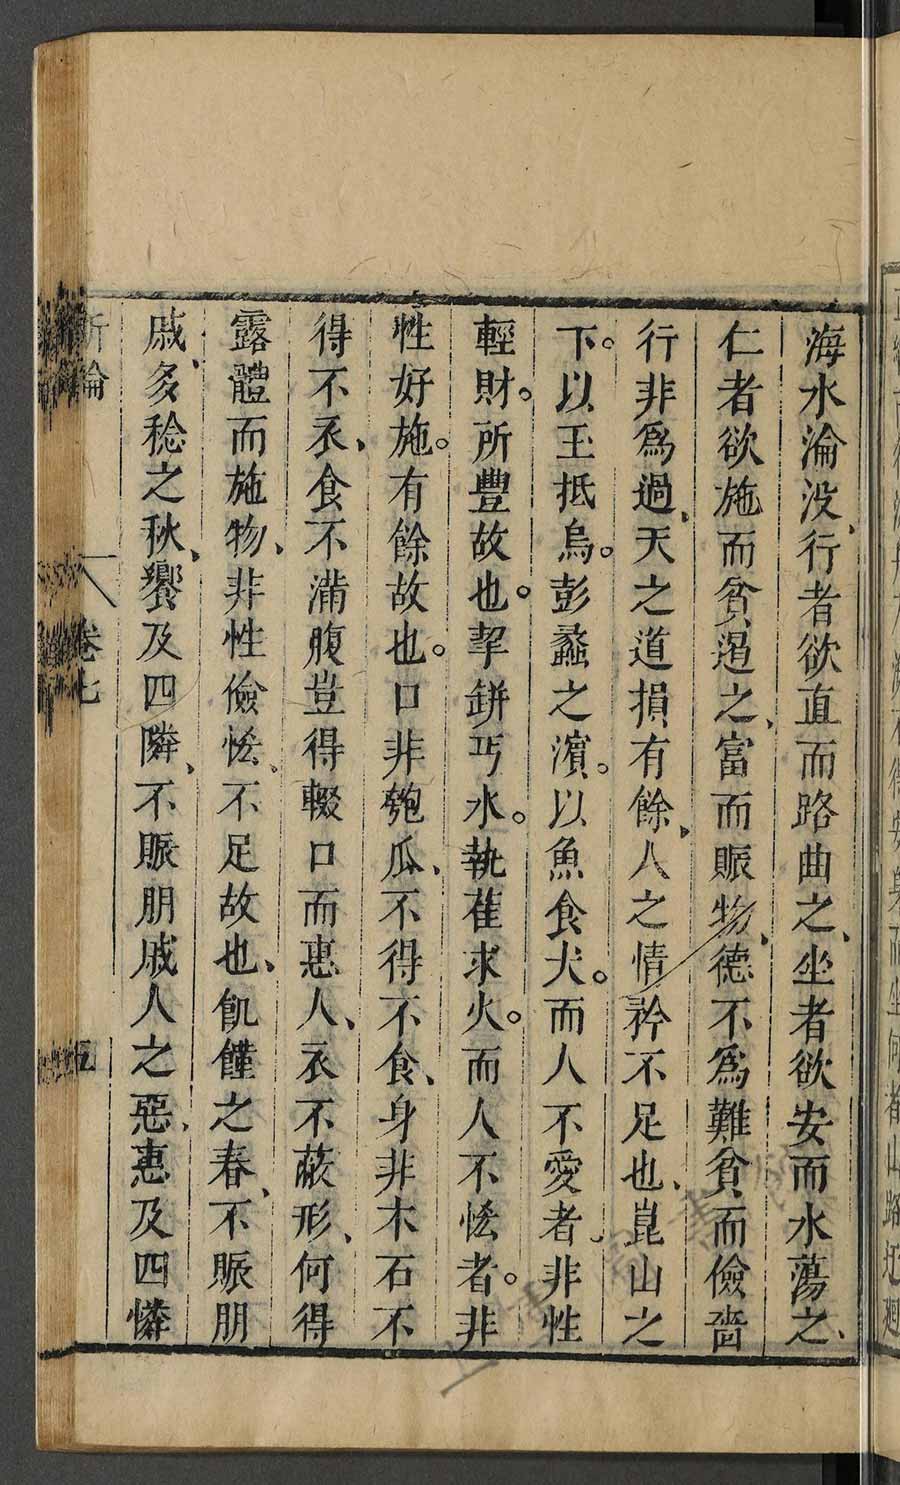 海水淪没、行者欲直而路曲之、坐者欲安而水蕩之、
仁者欲施而貧遏之、富而賑物、德不爲難貧而儉嗇
行非爲過、天之道損有餘、人之情矜不足也、崑山之
下。以玉抵烏。彭蠡之濱。以魚食犬。而人不愛者、非性
輕財。所豐故也。挈缾丐水。執萑求火。而人不恡者。非
性好施。有餘故也。口非匏瓜、不得不食、身非木石不
得不衣、食不滿腹豈得輟口而惠人、衣不蔽形、何得
露體而施物、非性儉恡。不足故也、飢饉之春、不賑朋
戚、多稔之秋、饗及四隣、不賑朋戚人之惡、惠及四憐
新論
卷七
五